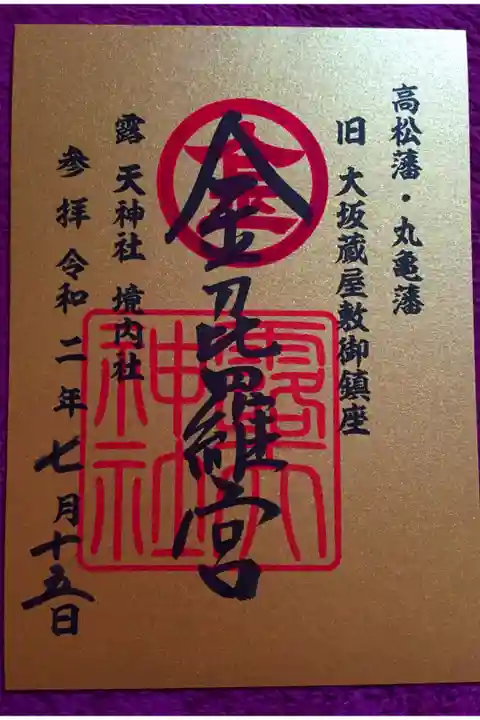 高松藩・丸亀藩
旧 大坂蔵屋敷御鎮座
金毘羅宮
露 天神社 境内社
参拝 令和二年七月十五日
金
露天
神社